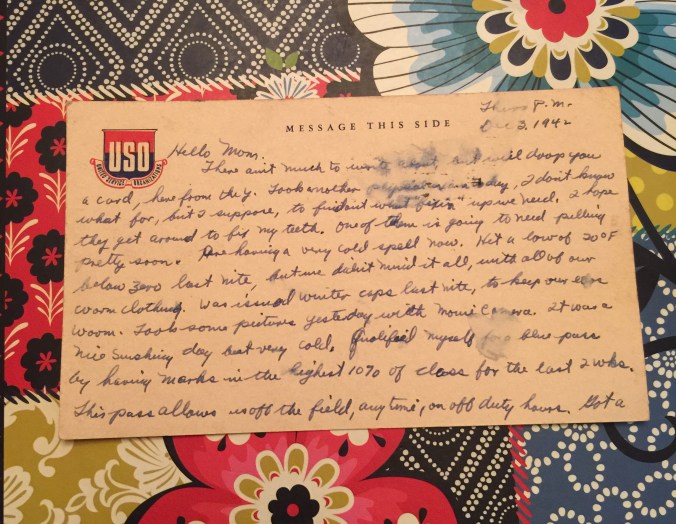 Thurs P.M.
MESSAGE THIS SIDE
Dec 3, 1942
USO
UNITED SERVICE ORGANIZATIONS
Hello Mom:
There aint much to write about but will drop you
a card, here from the Y. Took another physical exam today, I don't know
what for, but I suppose, to find out what fixin' up we need. I hope
they get around to fix my teeth. One of them is going to need pulling
pretty soon. Are having a very cold spell now. Hit a low of 20°F
below zero last nite, but we didn't mind it all, with all of our
warm clothing. Was issued winter caps last nite, to keep our ears
warm. Took some pictures yesterday with movie camera. It was a
nice sunshiny day but very cold. Qualified myself for a blue pass
by having marks in the highest 10% of class for the last 2 wks.
This pass allows us off the field, anytime, on off duty hours. Got a